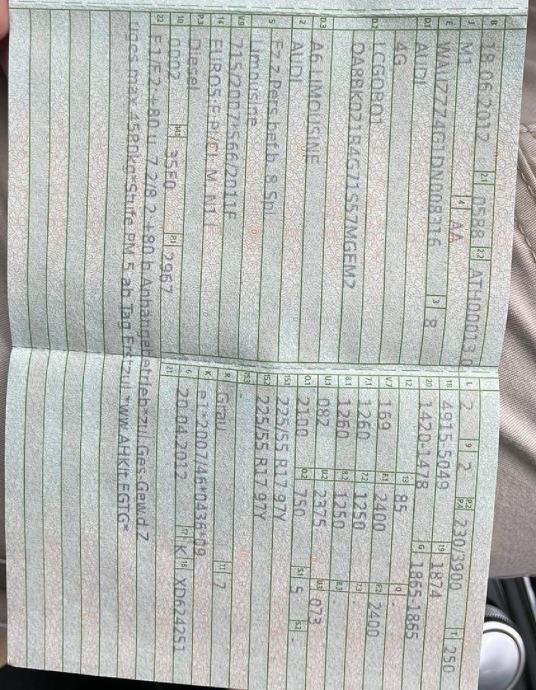 B 19.06.2012 2.1 0588 2.2 ATH00013
J M1 4 AA
E WAUZZZ4G1DN008316 3 8
D.1 AUDI
4G
D.2 LCGQBQ1
QA8BKQ21R4G71S57MGEM2
D.3 A6 LIMOUSINE
2 AUDI
5 Fz.z.Pers.bef.b. 8 Spl.
Limousine
V.9 715/2007*566/2011F
14 EURO5;F;PI/CI; M, N1 I
P.3 Diesel
10 0002 14.1 35F0 P.1 2967
22 F.1/F.2:+80 u. 7.2/8.2:+80 b.Anhängebetrieb*zul.Ges-Gew.d.Z
uges max.4580kg*Stufe PM 5 ab Tag Erstzul.*ww.AHK lt.EGTG*
L 2 9 2 P.2 P.4 230/3900 T 250
18 4915-5049 19 1874
20 1420-1478 G 1865-1865
12 - 13 85 Q -
V.7 169 F.1 2400 F.2 2400
7.1 1260 7.2 1250 7.3 -
8.1 1260 8.2 1250 8.3 -
U.1 082 U.2 2375 U.3 073
O.1 2100 O.2 750 S.1 5 S.2 -
15.1 225/55 R17 97Y
15.2 225/55 R17 97Y
15.3 -
R Grau 11 7
K e1*2007/46*0436*09
6 20.04.2012 17 K 16 XD624251
21